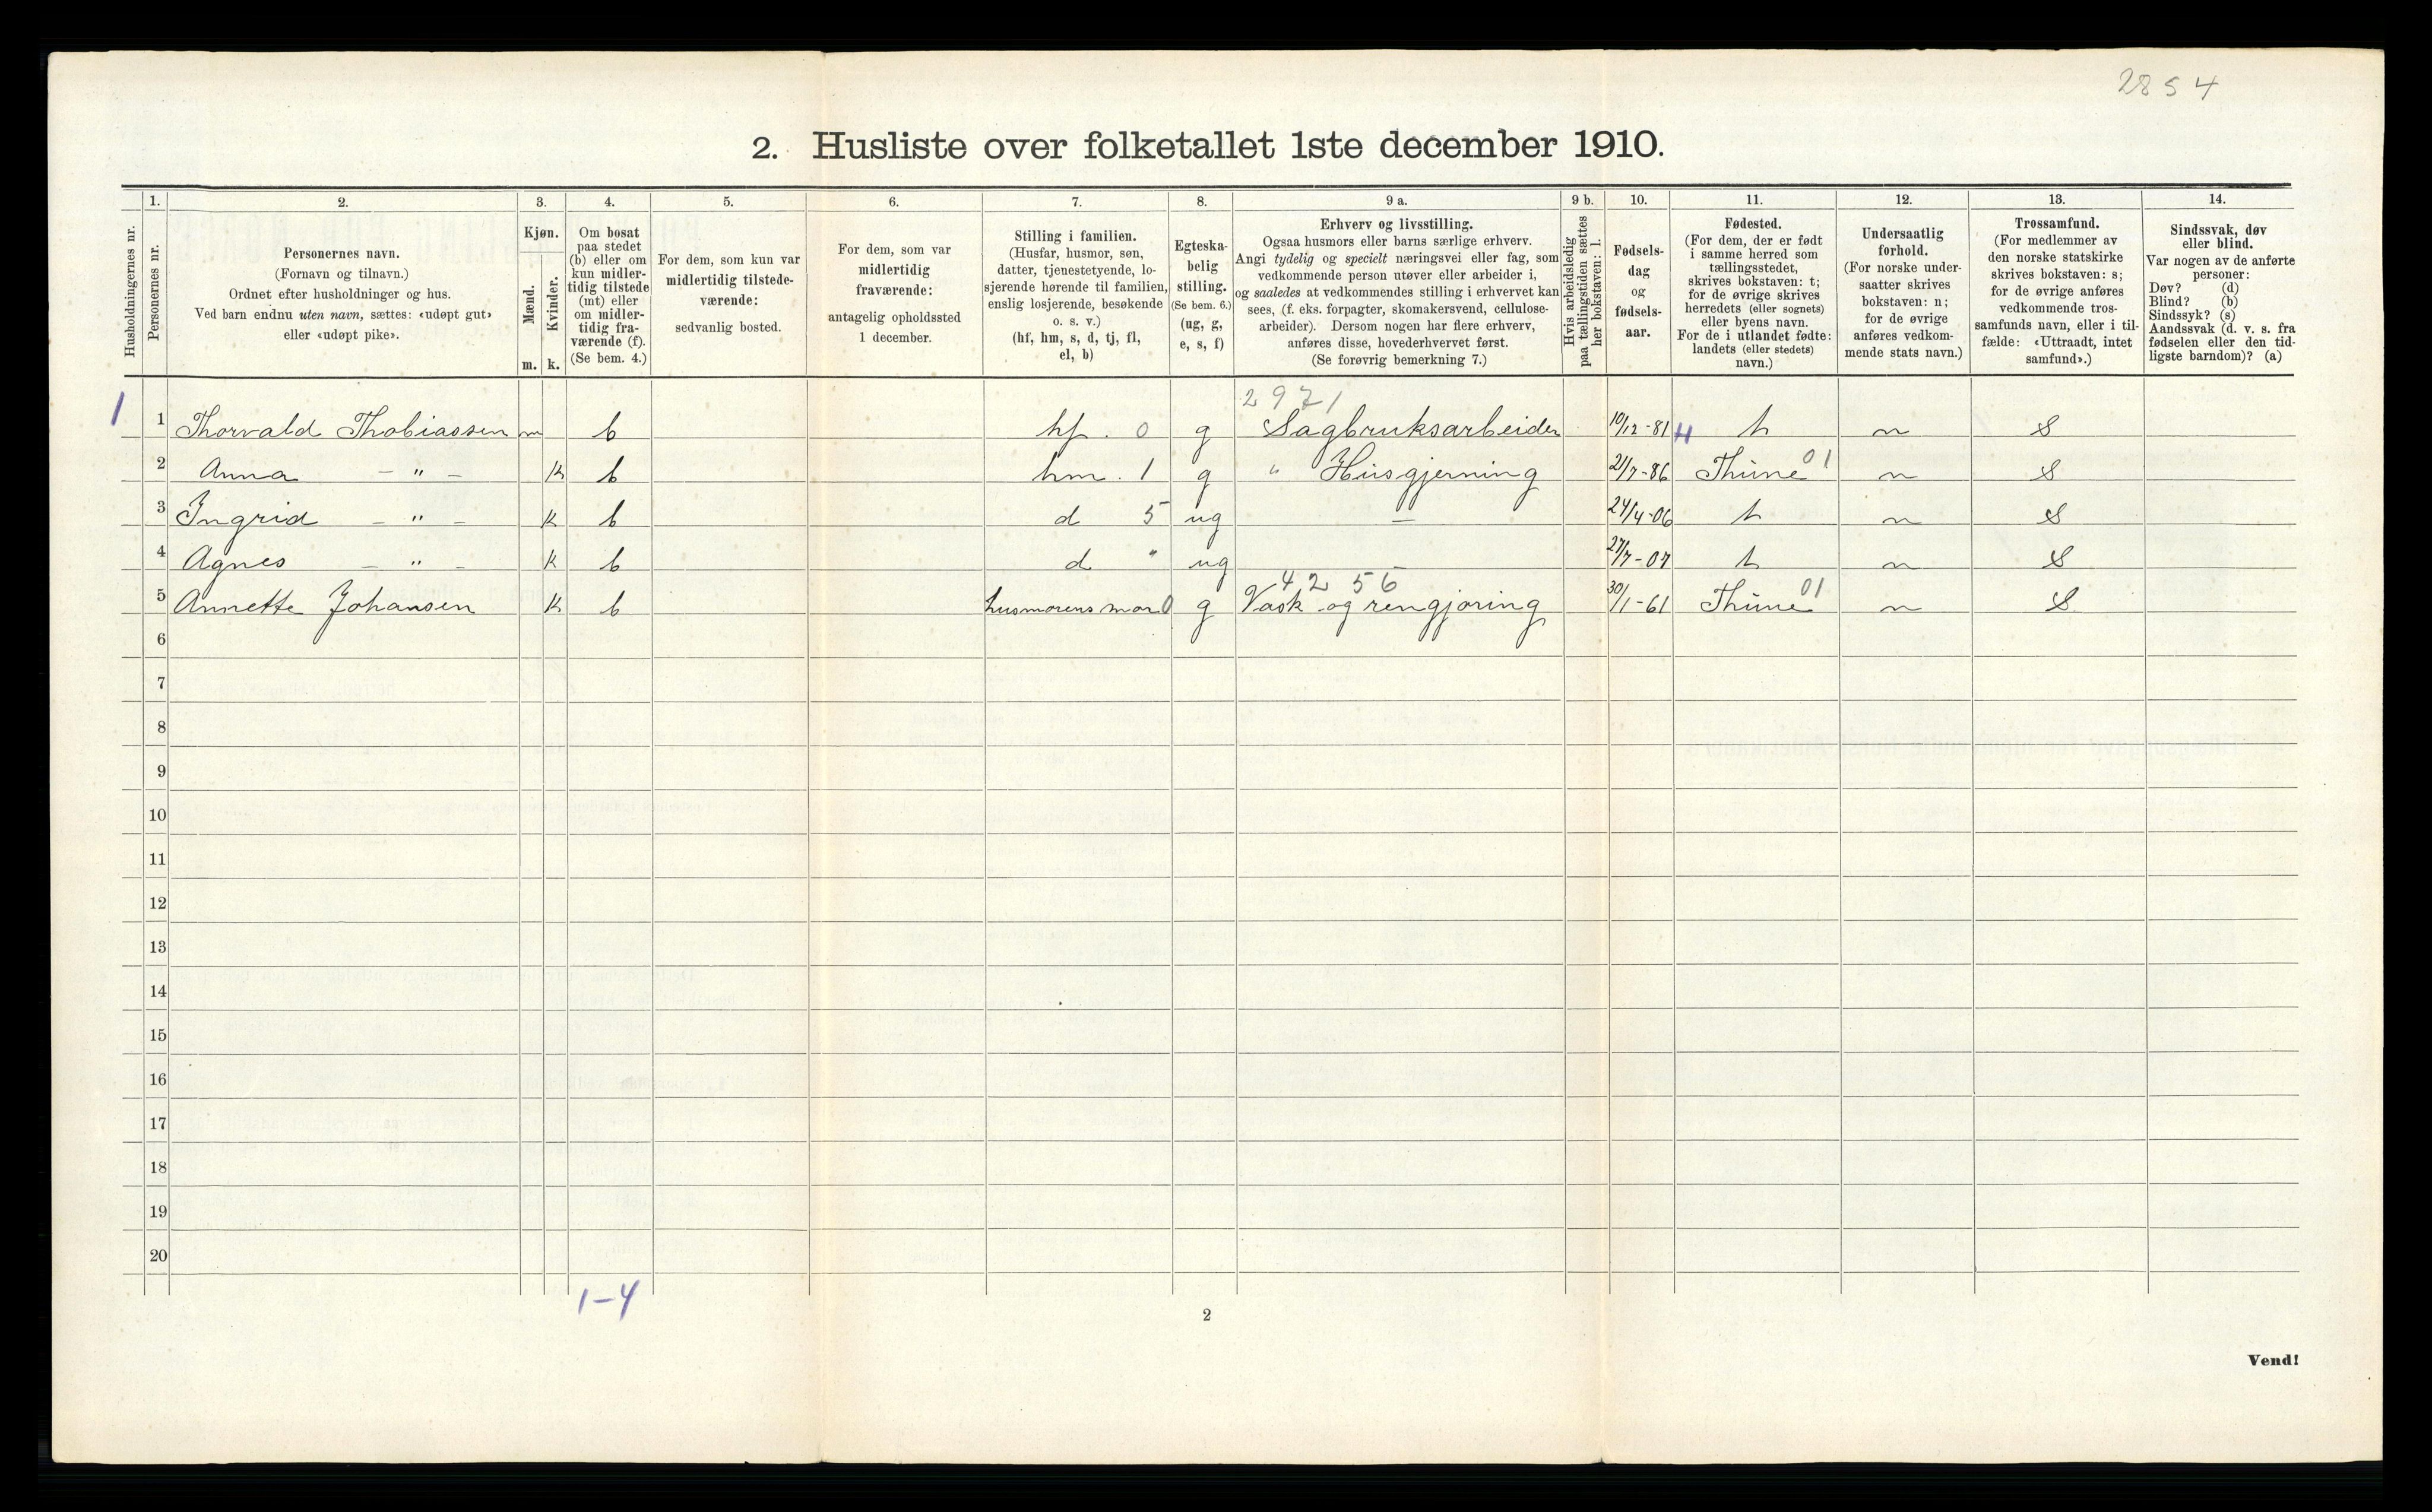 2854
2. Husliste over folketallet 1ste december 1910.
Husholdningernes nr.
1. Personernes nr.
2. Personernes navn.
(Fornavn og tilnavn.)
Ordnet efter husholdninger og hus.
Ved barn endnu uten navn, sættes: «udøpt gut»
eller «udøpt pike».
3. Kjøn.
Mænd. m.
Kvinder. k.
4. Om bosat
paa stedet
(b) eller om
kun midler-
tidig tilstede
(mt) eller
om midler-
tidig fra-
værende (f).
(Se bem. 4.)
5. For dem, som kun var
midlertidig tilstede-
værende:
sedvanlig bosted.
6. For dem, som var
midlertidig
fraværende:
antagelig opholdssted
1 december.
7. Stilling i familien.
(Husfar, husmor, søn,
datter, tjenestetyende, lo-
sjerende hørende til familien,
enslig losjerende, besøkende
o. s. v.)
(hf, hm, s, d, tj, fl,
el, b)
8. Egteska-
belig
stilling.
(Se bem. 6.)
(ug, g,
e, s, f)
9 a. Erhverv og livsstilling.
Ogsaa husmors eller barns særlige erhverv.
Angi tydelig og specielt næringsvei eller fag, som
vedkommende person utøver eller arbeider i,
og saaledes at vedkommendes stilling i erhvervet kan
sees, (f. eks. forpagter, skomakersvend, cellulose-
arbeider). Dersom nogen har flere erhverv,
anføres disse, hovederhvervet først.
(Se forøvrig bemerkning 7.)
9 b. Hvis arbeidsledig
paa tællingstiden sættes
her bokstaven: l.
10. Fødsels-
dag
og
fødsels-
aar.
11. Fødested.
(For dem, der er født
i samme herred som
tællingsstedet,
skrives bokstaven: t;
for de øvrige skrives
herredets (eller sognets)
eller byens navn.
For de i utlandet fødte:
landets (eller stedets)
navn.)
12. Undersaatlig
forhold.
(For norske under-
saatter skrives
bokstaven: n;
for de øvrige
anføres vedkom-
mende stats navn.)
13. Trossamfund.
(For medlemmer av
den norske statskirke
skrives bokstaven: s;
for de øvrige anføres
vedkommende tros-
samfunds navn, eller i til-
fælde: «Uttraadt, intet
samfund».)
14. Sindssvak, døv
eller blind.
Var nogen av de anførte
personer:
Døv? (d)
Blind? (b)
Sindssyk? (s)
Aandssvak (d. v. s. fra
fødselen eller den tid-
ligste barndom)? (a)
2971
1 1 Thorvald Thobiassen m b hf. 0 g Sagbruksarbeider 10/12-81 t n S
2 Anna - " - K b hm. 1 g " Husgjerning 21/7-86 Thune 01 n S
3 Ingrid - " - K b d 5 ug - 24/4-06 t n S
4 Agnes - " - K b d " ug 27/7-07 t n S
42 56
5 Annette Johansen K b husmorens mor 0 g Vask og rengjøring 30/1-61 Thune 01 n S
6
7
8
9
10
11
12
13
14
15
16
17
18
19
20
1-4
2
Vend!